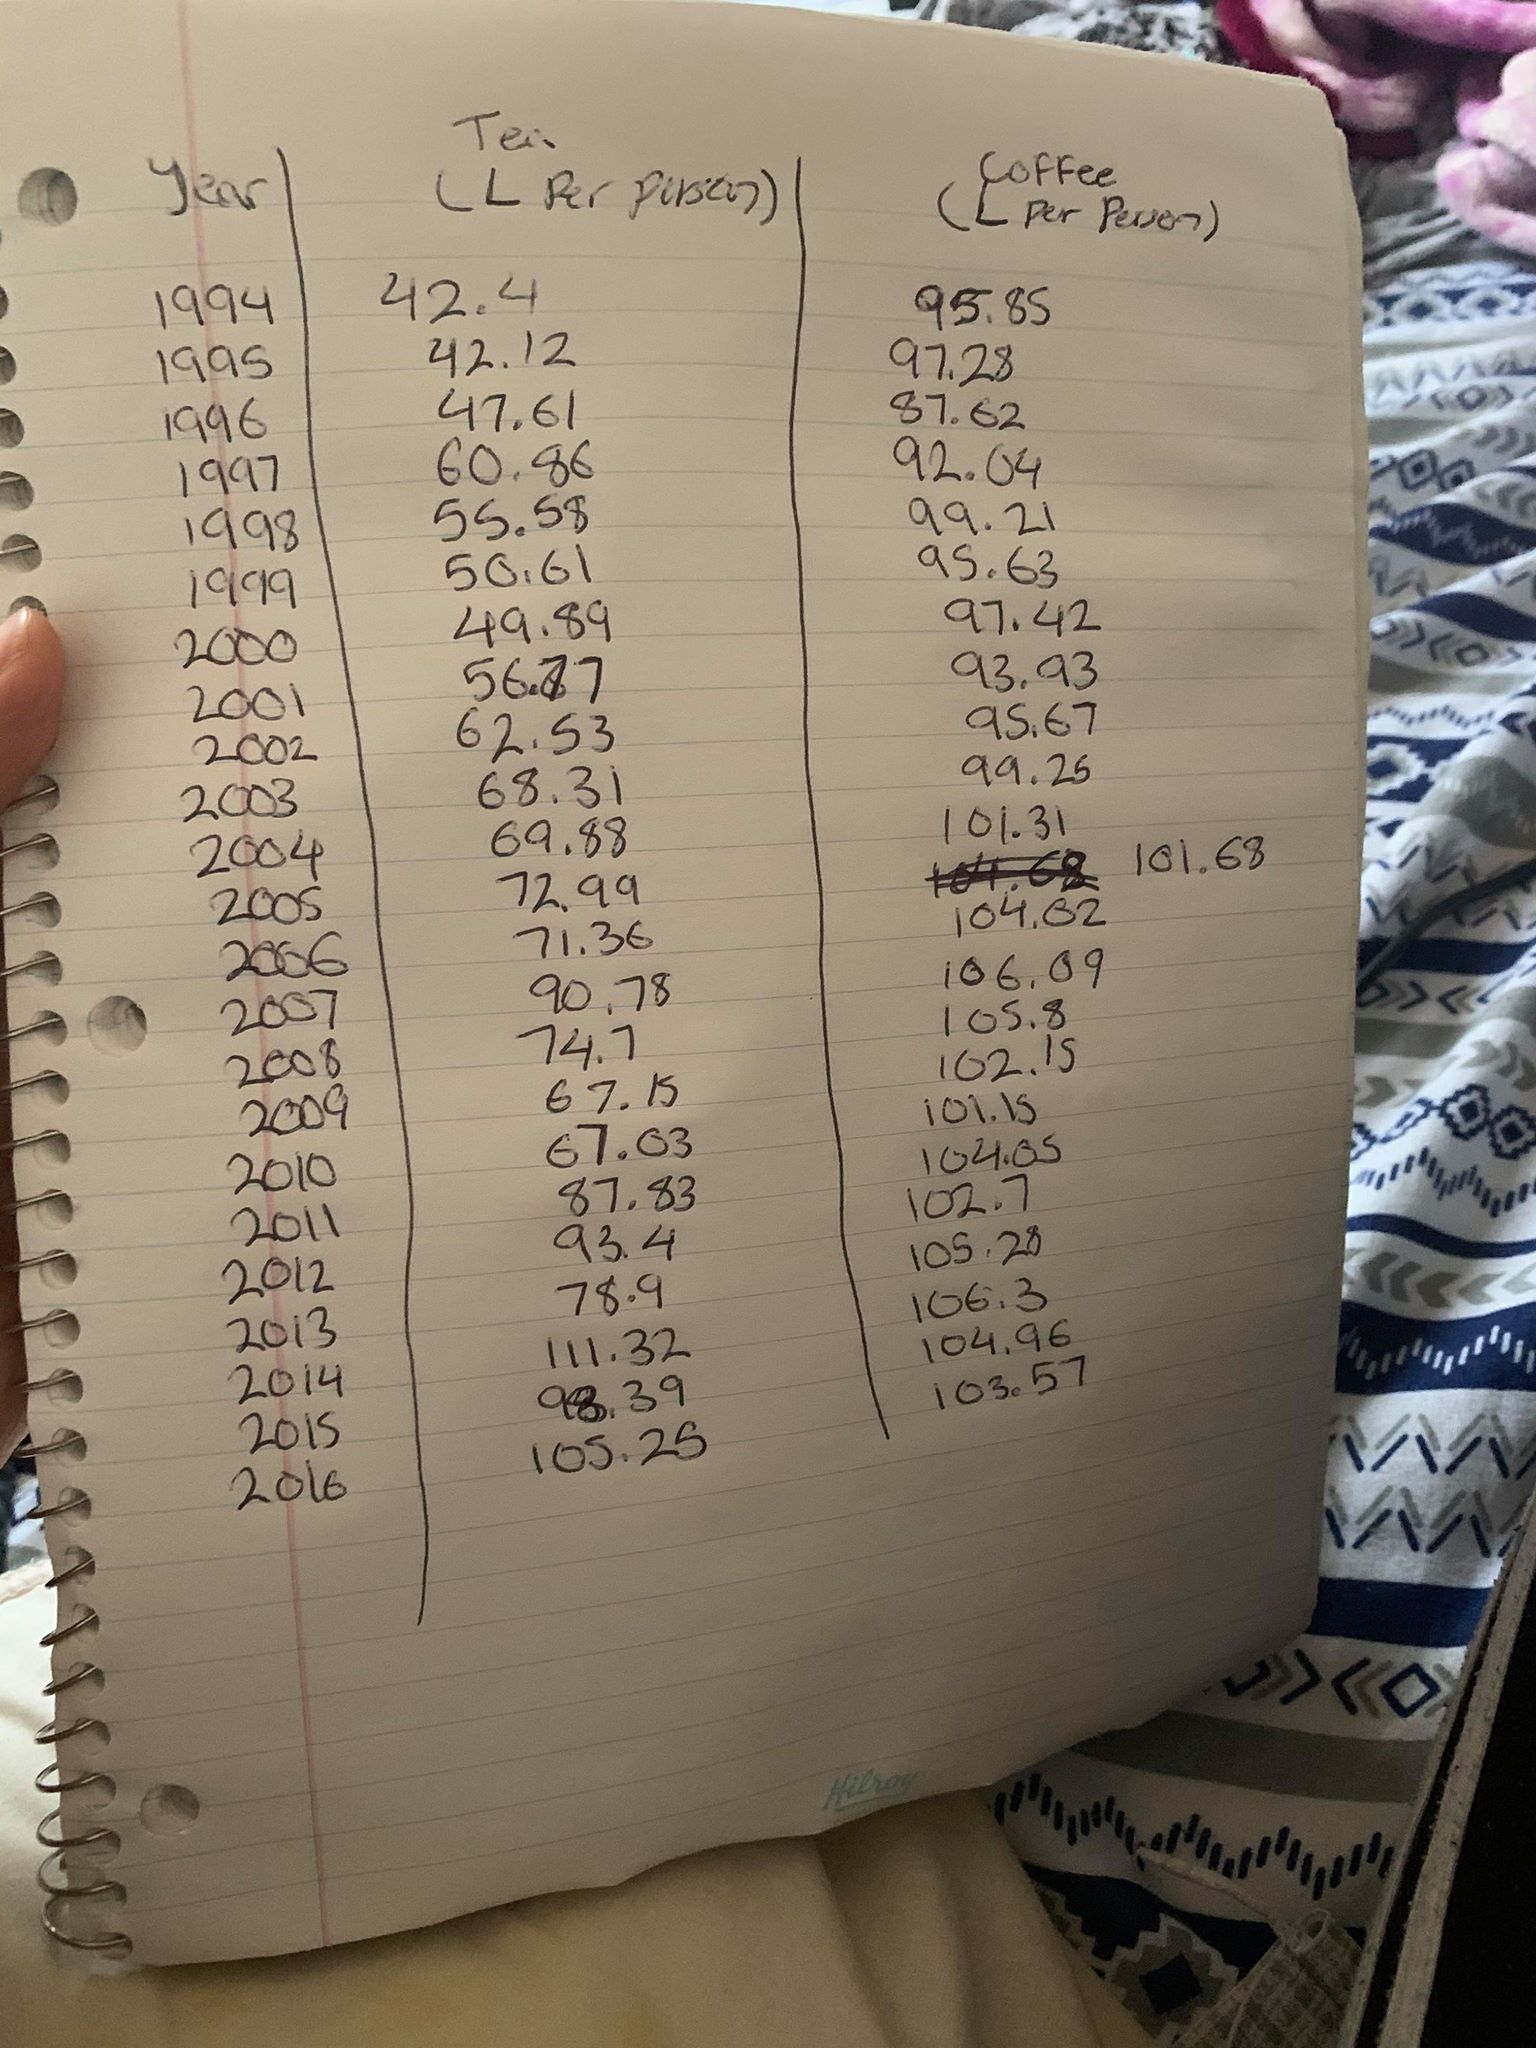 Tea
Year (L Per person) Coffee
(L Per Person)
1994 42.4 95.85
1995 42.12 97.28
1996 47.61 87.62
1997 60.86 92.04
1998 55.58 99.21
1999 50.61 95.63
2000 49.89 97.42
2001 56.77 93.93
2002 62.53 95.67
2003 68.31 99.25
2004 69.88 101.31
2005 72.99 101.68
2006 71.36 104.02
2007 90.78 106.09
2008 74.7 105.8
2009 67.15 102.15
2010 67.03 101.15
2011 87.83 104.05
2012 93.4 102.7
2013 78.9 105.28
2014 111.32 106.3
2015 98.39 104.96
2016 105.25 103.57
Hilroy